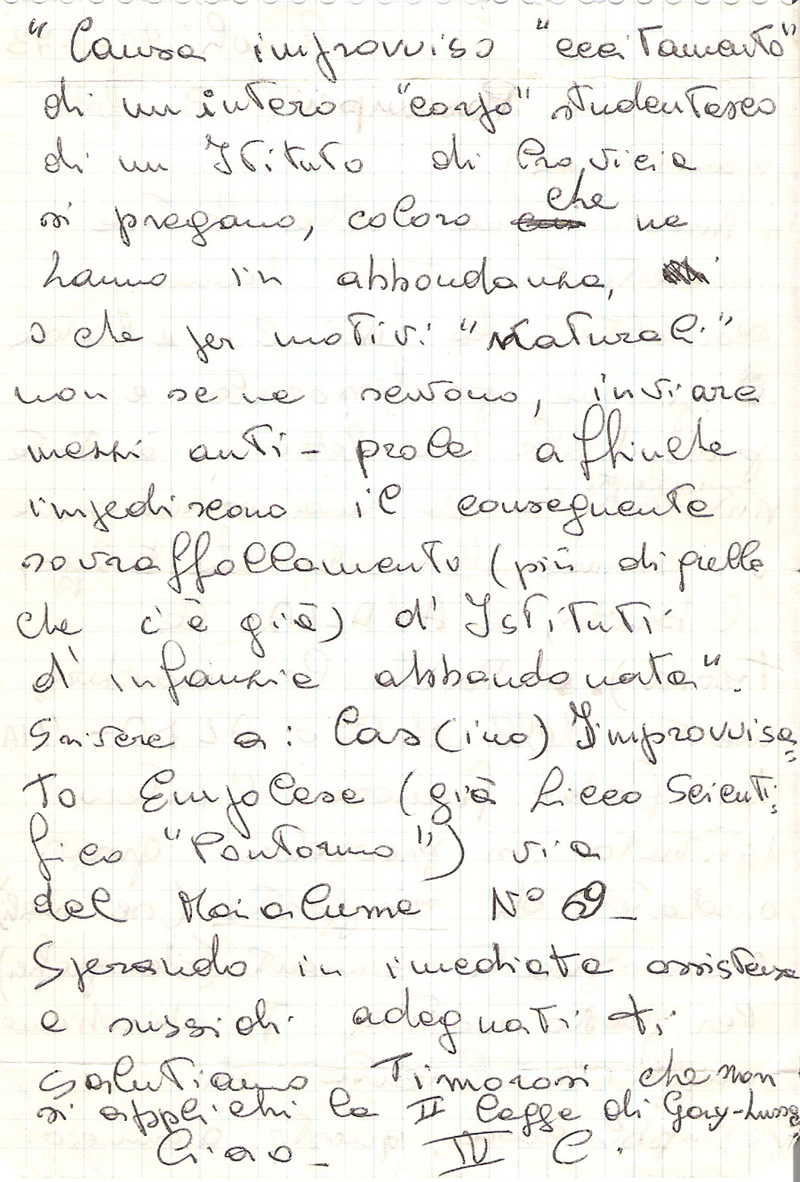 "Causa improvviso "eccitamento"
di un intero "corpo" studentesco
di un Istituto di Provicia
si pregano, coloro che ne
hanno in abbondanza,
o che per motivi "naturali"
non se ne servono, inviare
mezzi anti-prole affinche
impediscono il conseguente
sovraffollamento (più di quello
che c'è già) d'Istituti
d'infanzia abbandonata".
Scrivere a: Cas(ino) Improvvisa=
to Empolese (già Liceo Scienti;
fico "Pontormo") via
del Maialume N° 69_
Sperando in imediata assistenza
e sussidi adeguati ti
salutiamo Timorosi che non
si applichi la II legge di Gay-Lussac
Ciao_ IV C.